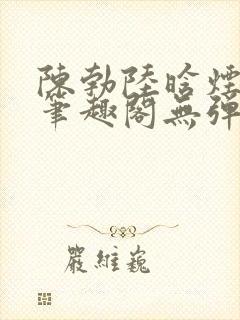 陳勃陸晗煙
筆趣閣無彈
嚴維巍